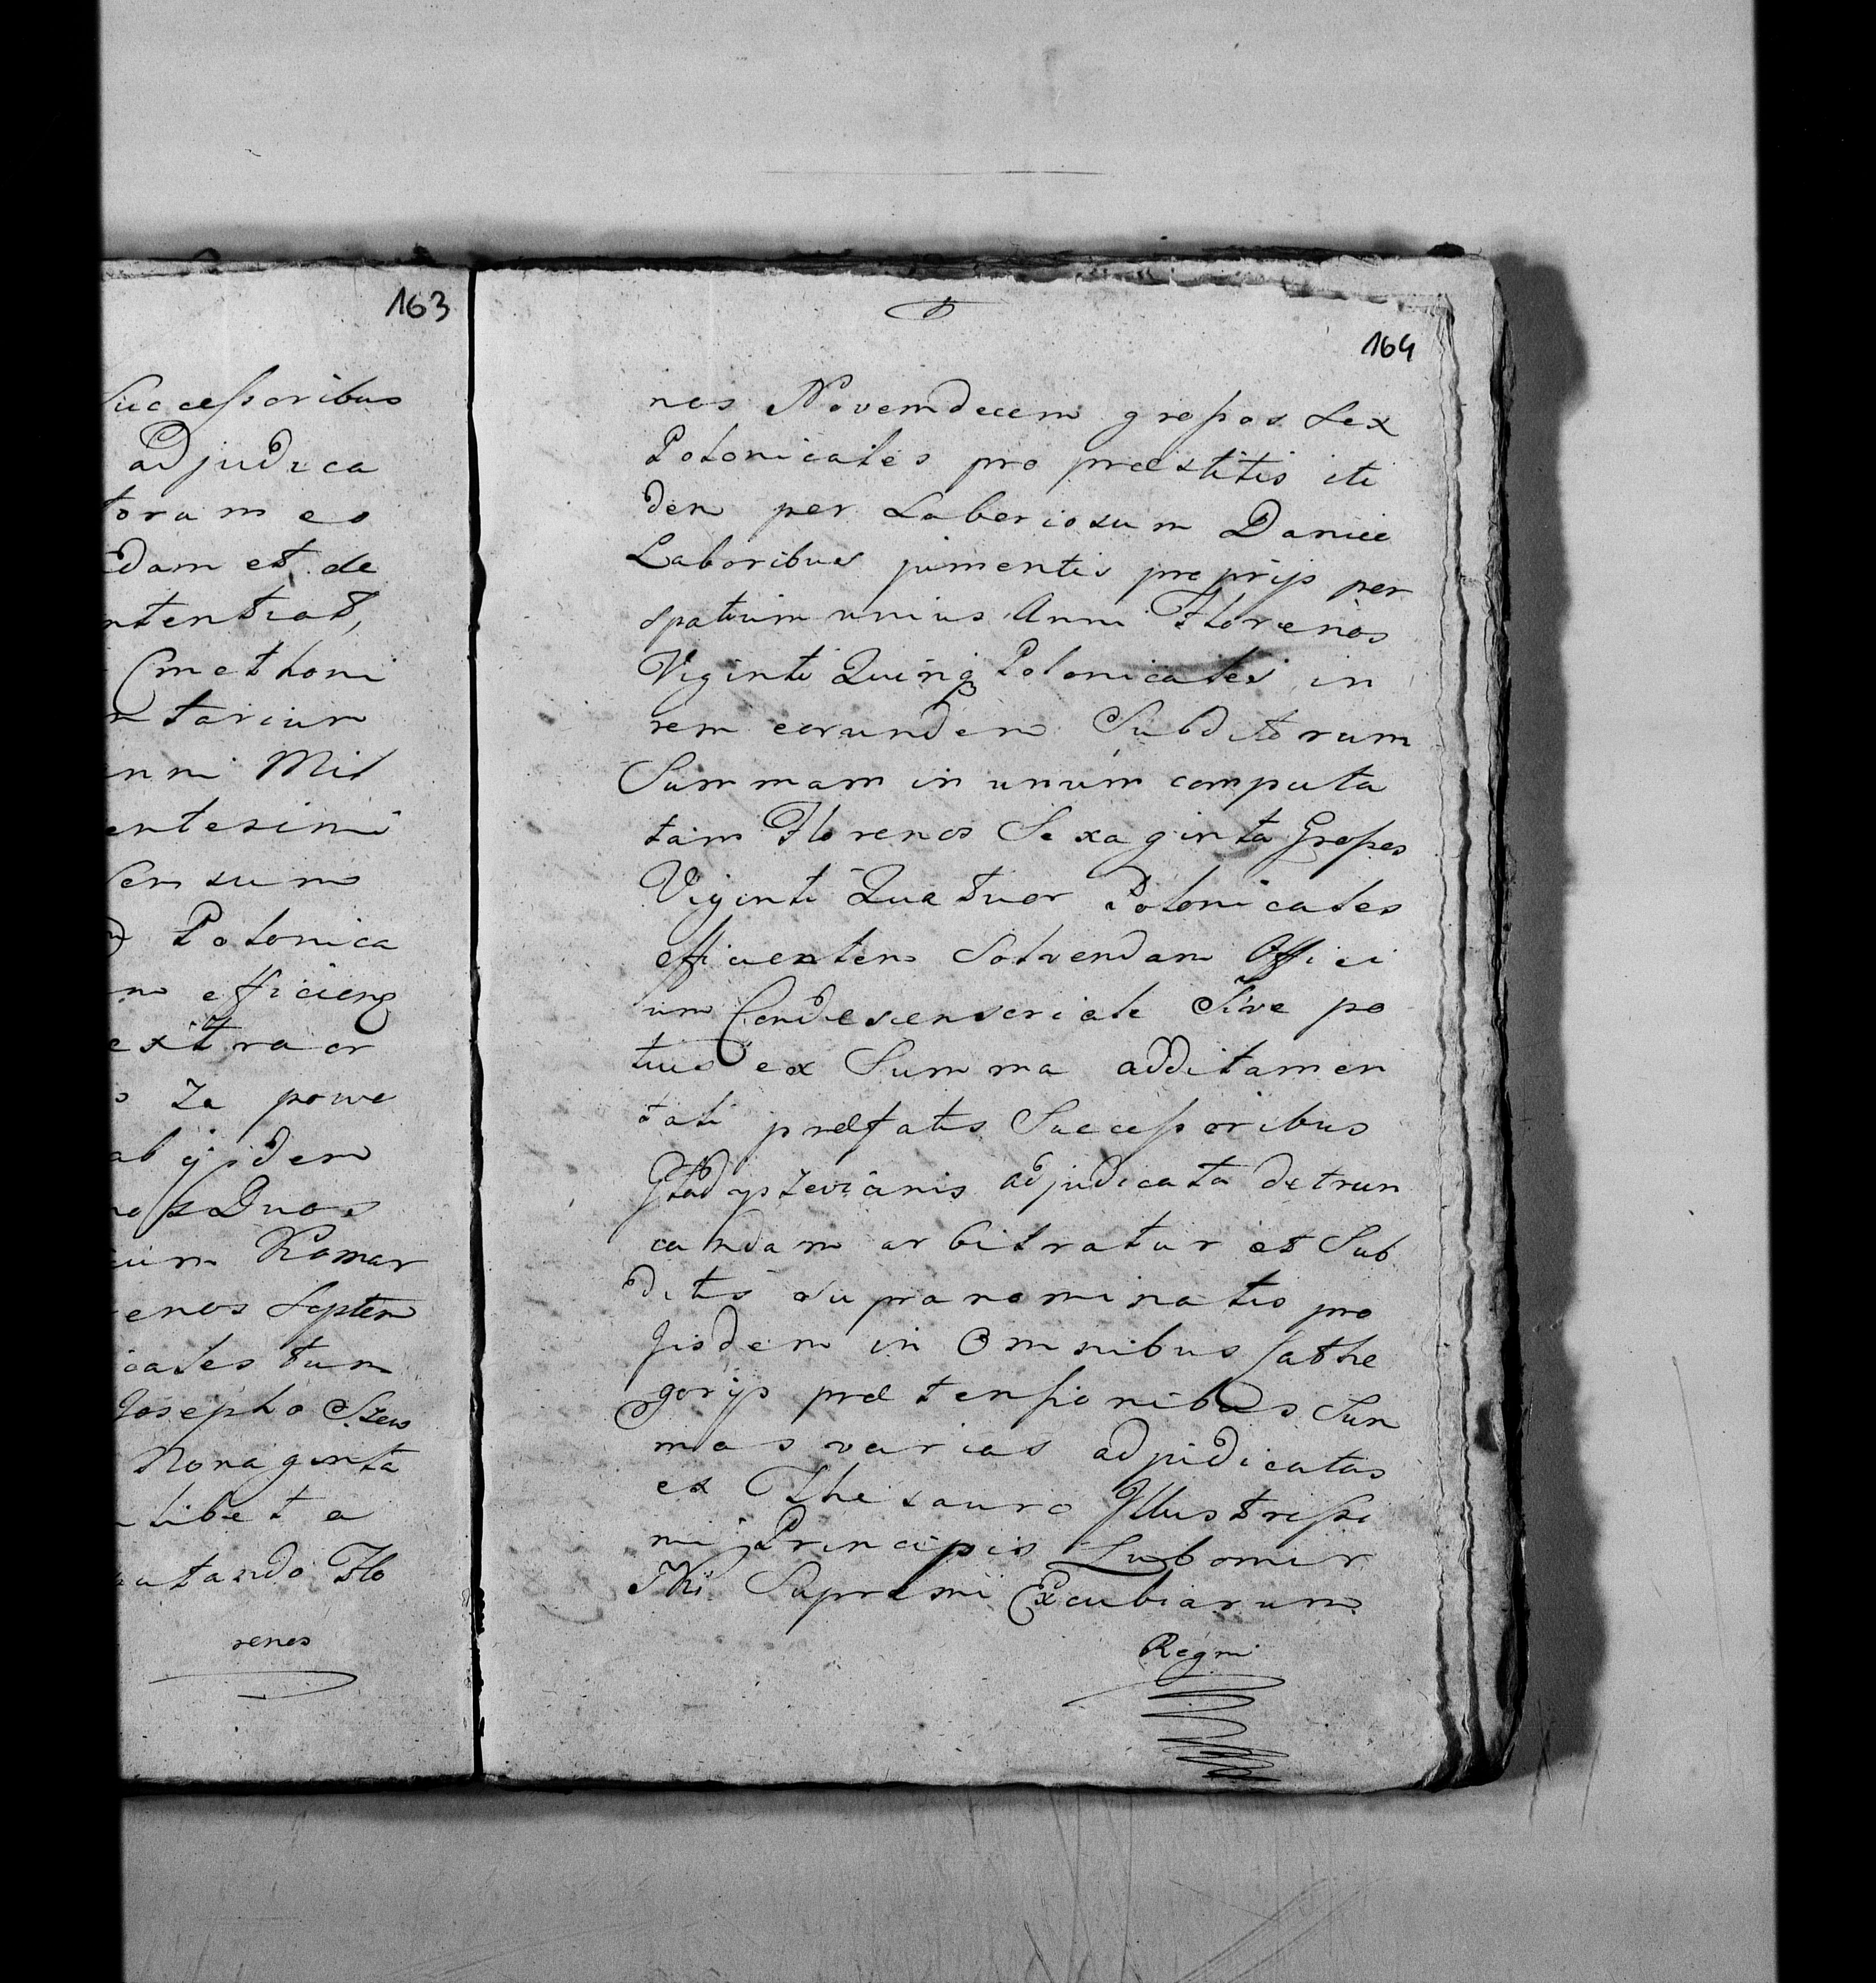 163
Successoribus
adjudica
toram eo
dam et de
ntentiat,
Cmethoni
ntarium
nni Mil
entesimi
Censum
Polonica
m efficienq
extraor
za powe
ab ijsdem
Duos
ium Komar
enos Septem
icales tum
Josepho Szew
Nonaginta
libet a
utando Flo
renos
164
nos Novemdecem grossos Sex
Polonicales pro præstitis iti
dem per Laboriosum Daniel
Laboribus jumentis proprijs per
spatium unius Anni Florenos
Viginti Quinq Polonicales in
rem eorundem Subditorum
Summam in unum computa
tam Florenos Sexaginta Grossos
Viginti Quatuor Polonicales
efficientem Solvendam Offici
um Condescensoriale Sive po
tius ex Summa additamen
tali præfatis Successoribus
Gładyszevianis adjudicata detrun
candam arbitratur et Sub
ditis supranominatis pro
Jisdem in Omnibus Cathe
gorijs prætensionibus Sum
mas varias adjudicatas
ex Thesauro Illustrissi
mi Principis Lubomir
ski Supremi Excubiarum
Regni